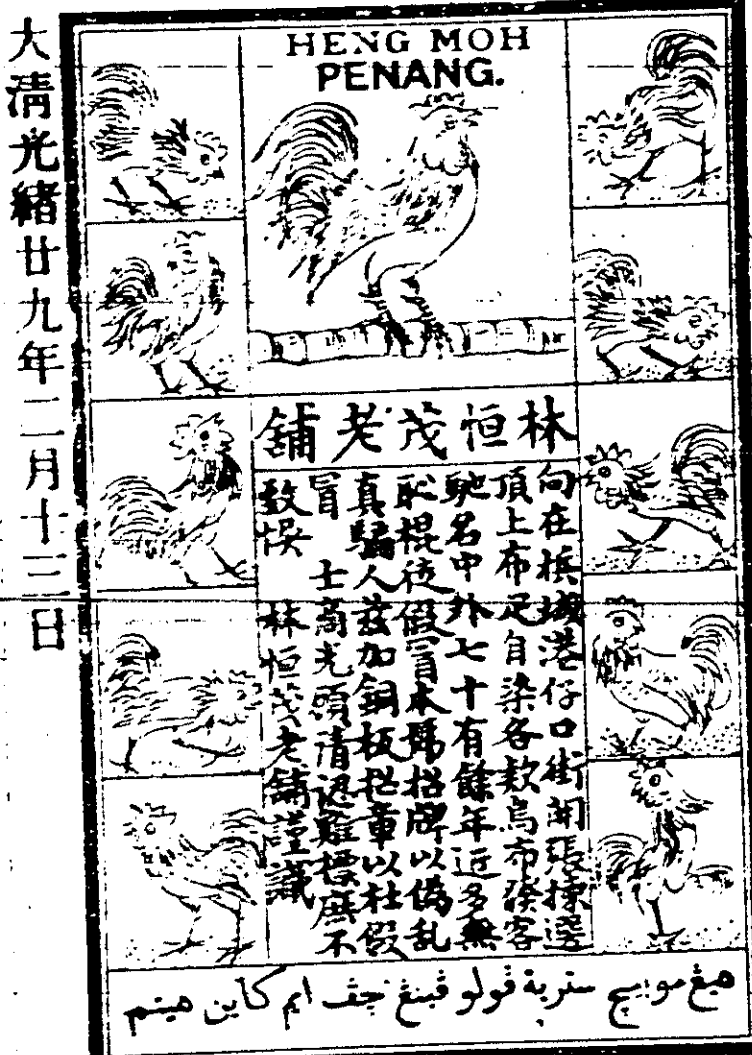 大清光緒廿九年二月十三日
HENG MOH
PENANG.
林恒茂老舖
向在檳城港仔口街開張揀選
頂上布疋自染各款烏布發客
馳名中外七十有餘年近多無
恥棍徒假冒本號招牌以偽乱
真騙人茲加銅板招章以杜假
冒 士商光顧請認雞標庶不
致悞 林恒茂老舖謹識
هيڠ مو بيچ سترية ڤولو ڤينڠ چڤ ايم كاين هيتم